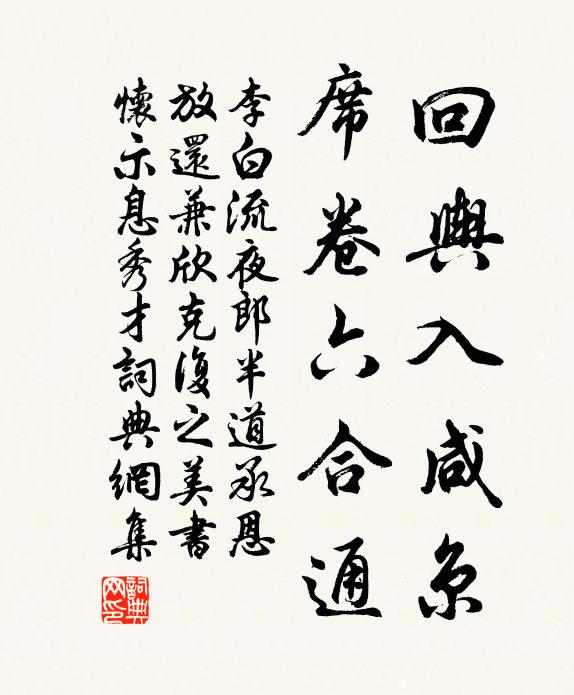 回輿入咸京
席卷六合通
李白流夜郎半道承恩
放還兼欣克復之美書
懷示息秀才詞典網集
詞典
网印